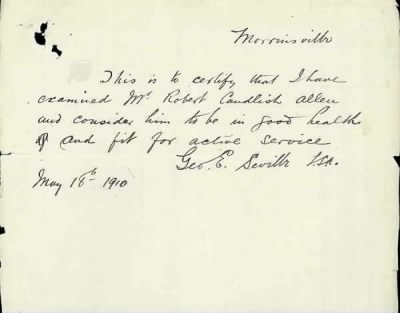 Morrinsville
This is to certify that I have
examined Mr Robert Candlish Allen
and consider him to be in good health
and fit for active service
Geo. E. Seville
May 18th 1910